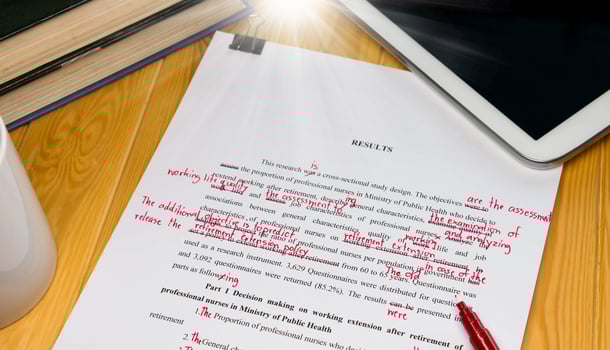 RESULTS
is
This research was a cross-sectional study design. The objectives were to are the assessment
assess the proportion of professional nurses in Ministry of Public Health who decide to
working life quality the assessment to
extend working after retirement, describing general characteristics, the examination of
life and job characteristics of professional nurses and analyzing
associations between general characteristics, quality of working life and job
The additional objective is to predict
characteristics of professional nurses on retirement extension
release the retirement extension policy
the ratio of nurses per population if government
retirement from 60 to 65 years. The old in case of the
used as a research instrument. 3,629 Questionnaires were distributed for
and 3,092 questionnaires were returned (85.2%). The results can be presented in
parts as following
were
Part 1 Decision making on working extension after retirement of
professional nurses in Ministry of Public Health
1. The Proportion of professional nurses who
retirement
2. The General
3. the